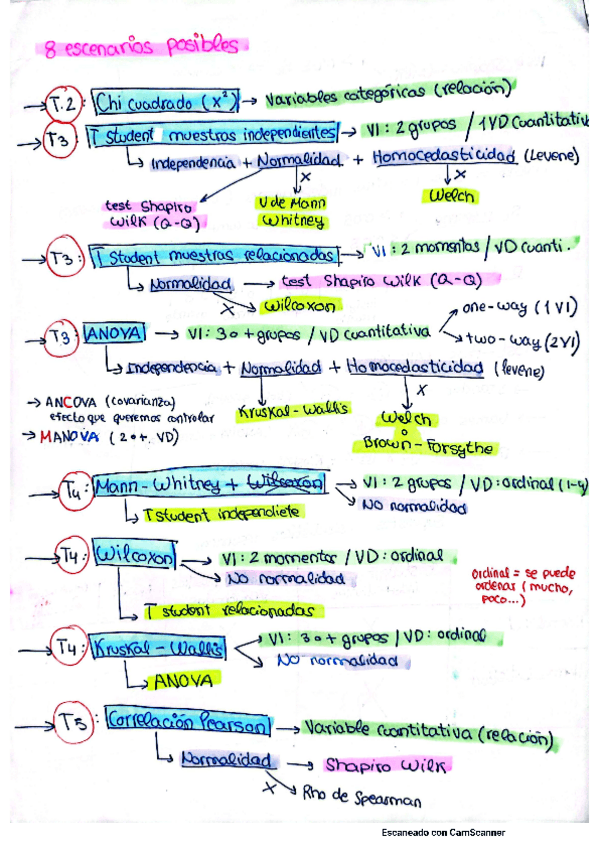 8 escenarios posibles
→ T.2: Chi cuadrado (x²) → Variables categóricas (relación)
→ T3: T Student muestras independientes → VI: 2 grupos / 1VD cuantitativa
↳ Independencia + Normalidad + Homocedasticidad (Levene)
x x
test Shapiro U de Mann Welch
Wilk (Q-Q) Whitney
→ T3: T Student muestras relacionadas → VI: 2 momentos / VD cuanti.
↳ Normalidad → test Shapiro Wilk (Q-Q)
x → Wilcoxon
one-way (1 VI)
→ T3: ANOVA → VI: 3 o + grupos / VD cuantitativa
two-way (2VI)
↳ Independencia + Normalidad + Homocedasticidad (levene)
x
→ ANCOVA (covarianza)
efecto que queremos controlar
Kruskal-Wallis Welch
→ MANOVA (2 o +. VD)
o
Brown-Forsythe
→ T4: Mann-Whitney + Wilcoxon → VI: 2 grupos / VD: ordinal (1-4)
NO normalidad
↳ T student independiete
→ T4: Wilcoxon → VI: 2 momentos / VD: ordinal
NO normalidad
Ordinal = se puede
ordenar (mucho,
poco...)
↳ T student relacionadas
→ T4: Kruskal-Wallis → VI: 3 o + grupos / VD: ordinal
NO normalidad
↳ ANOVA
→ T5: Correlación Pearson → Variable cuantitativa (relación)
↳ Normalidad → Shapiro Wilk
x → Rho de Spearman
Escaneado con CamScanner